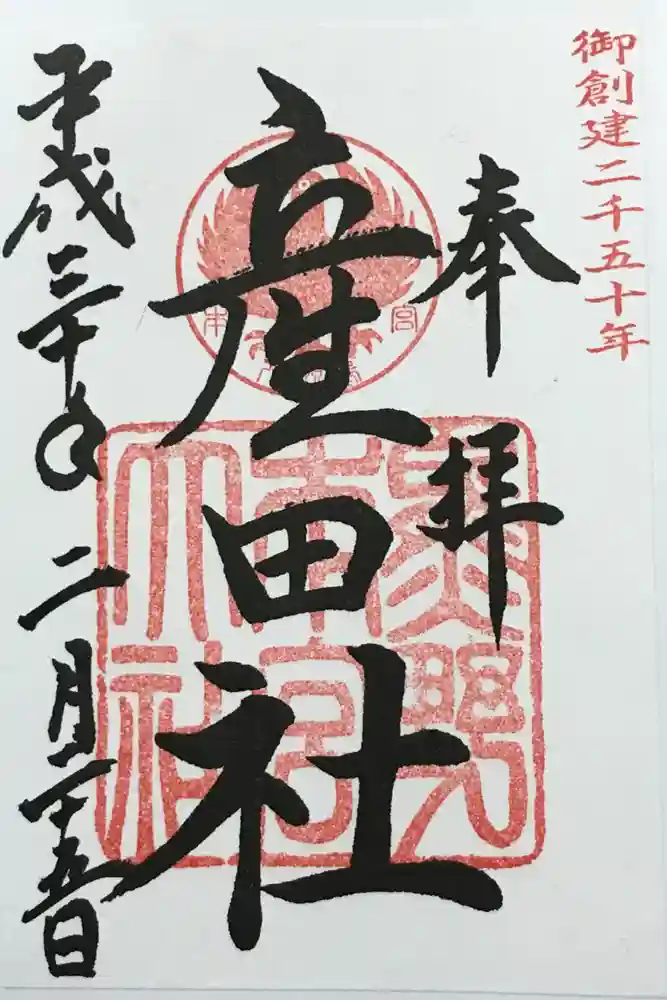 御創建二千五十年
奉拝
産田社
平成三十年二月二十五日
熊野
本宮
大社